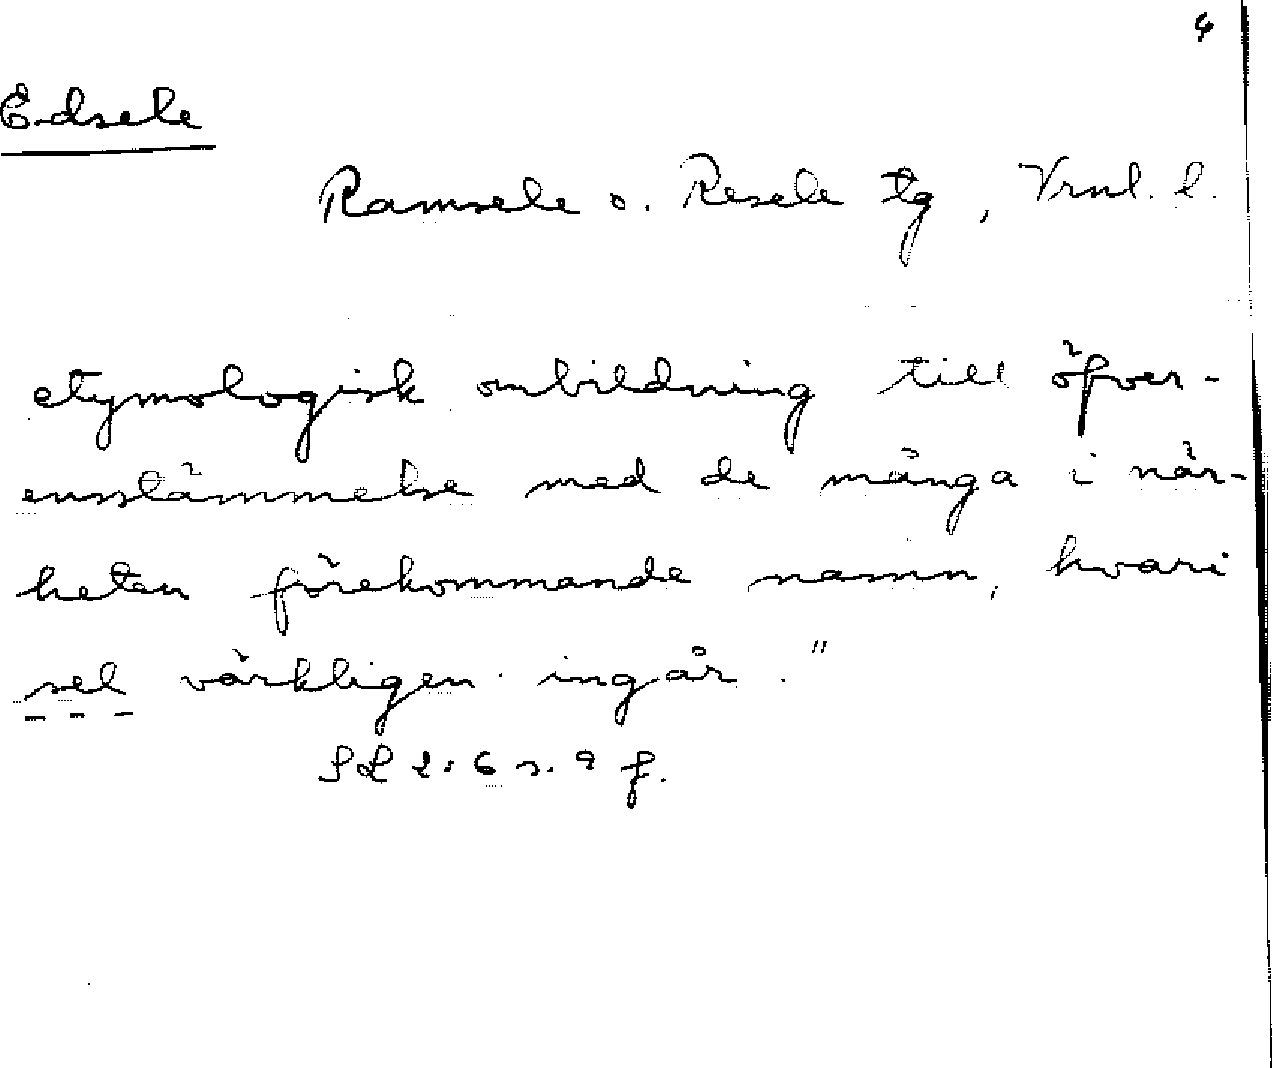 4
Edsele
Ramsele o. Resele tg, Vrnl. l.
etymologisk ombildning till öfver-
ensstämmelse med de många i när-
heten förekommande namn, hvari
sel värkligen ingår."
SL 2:6 s. 9 f.